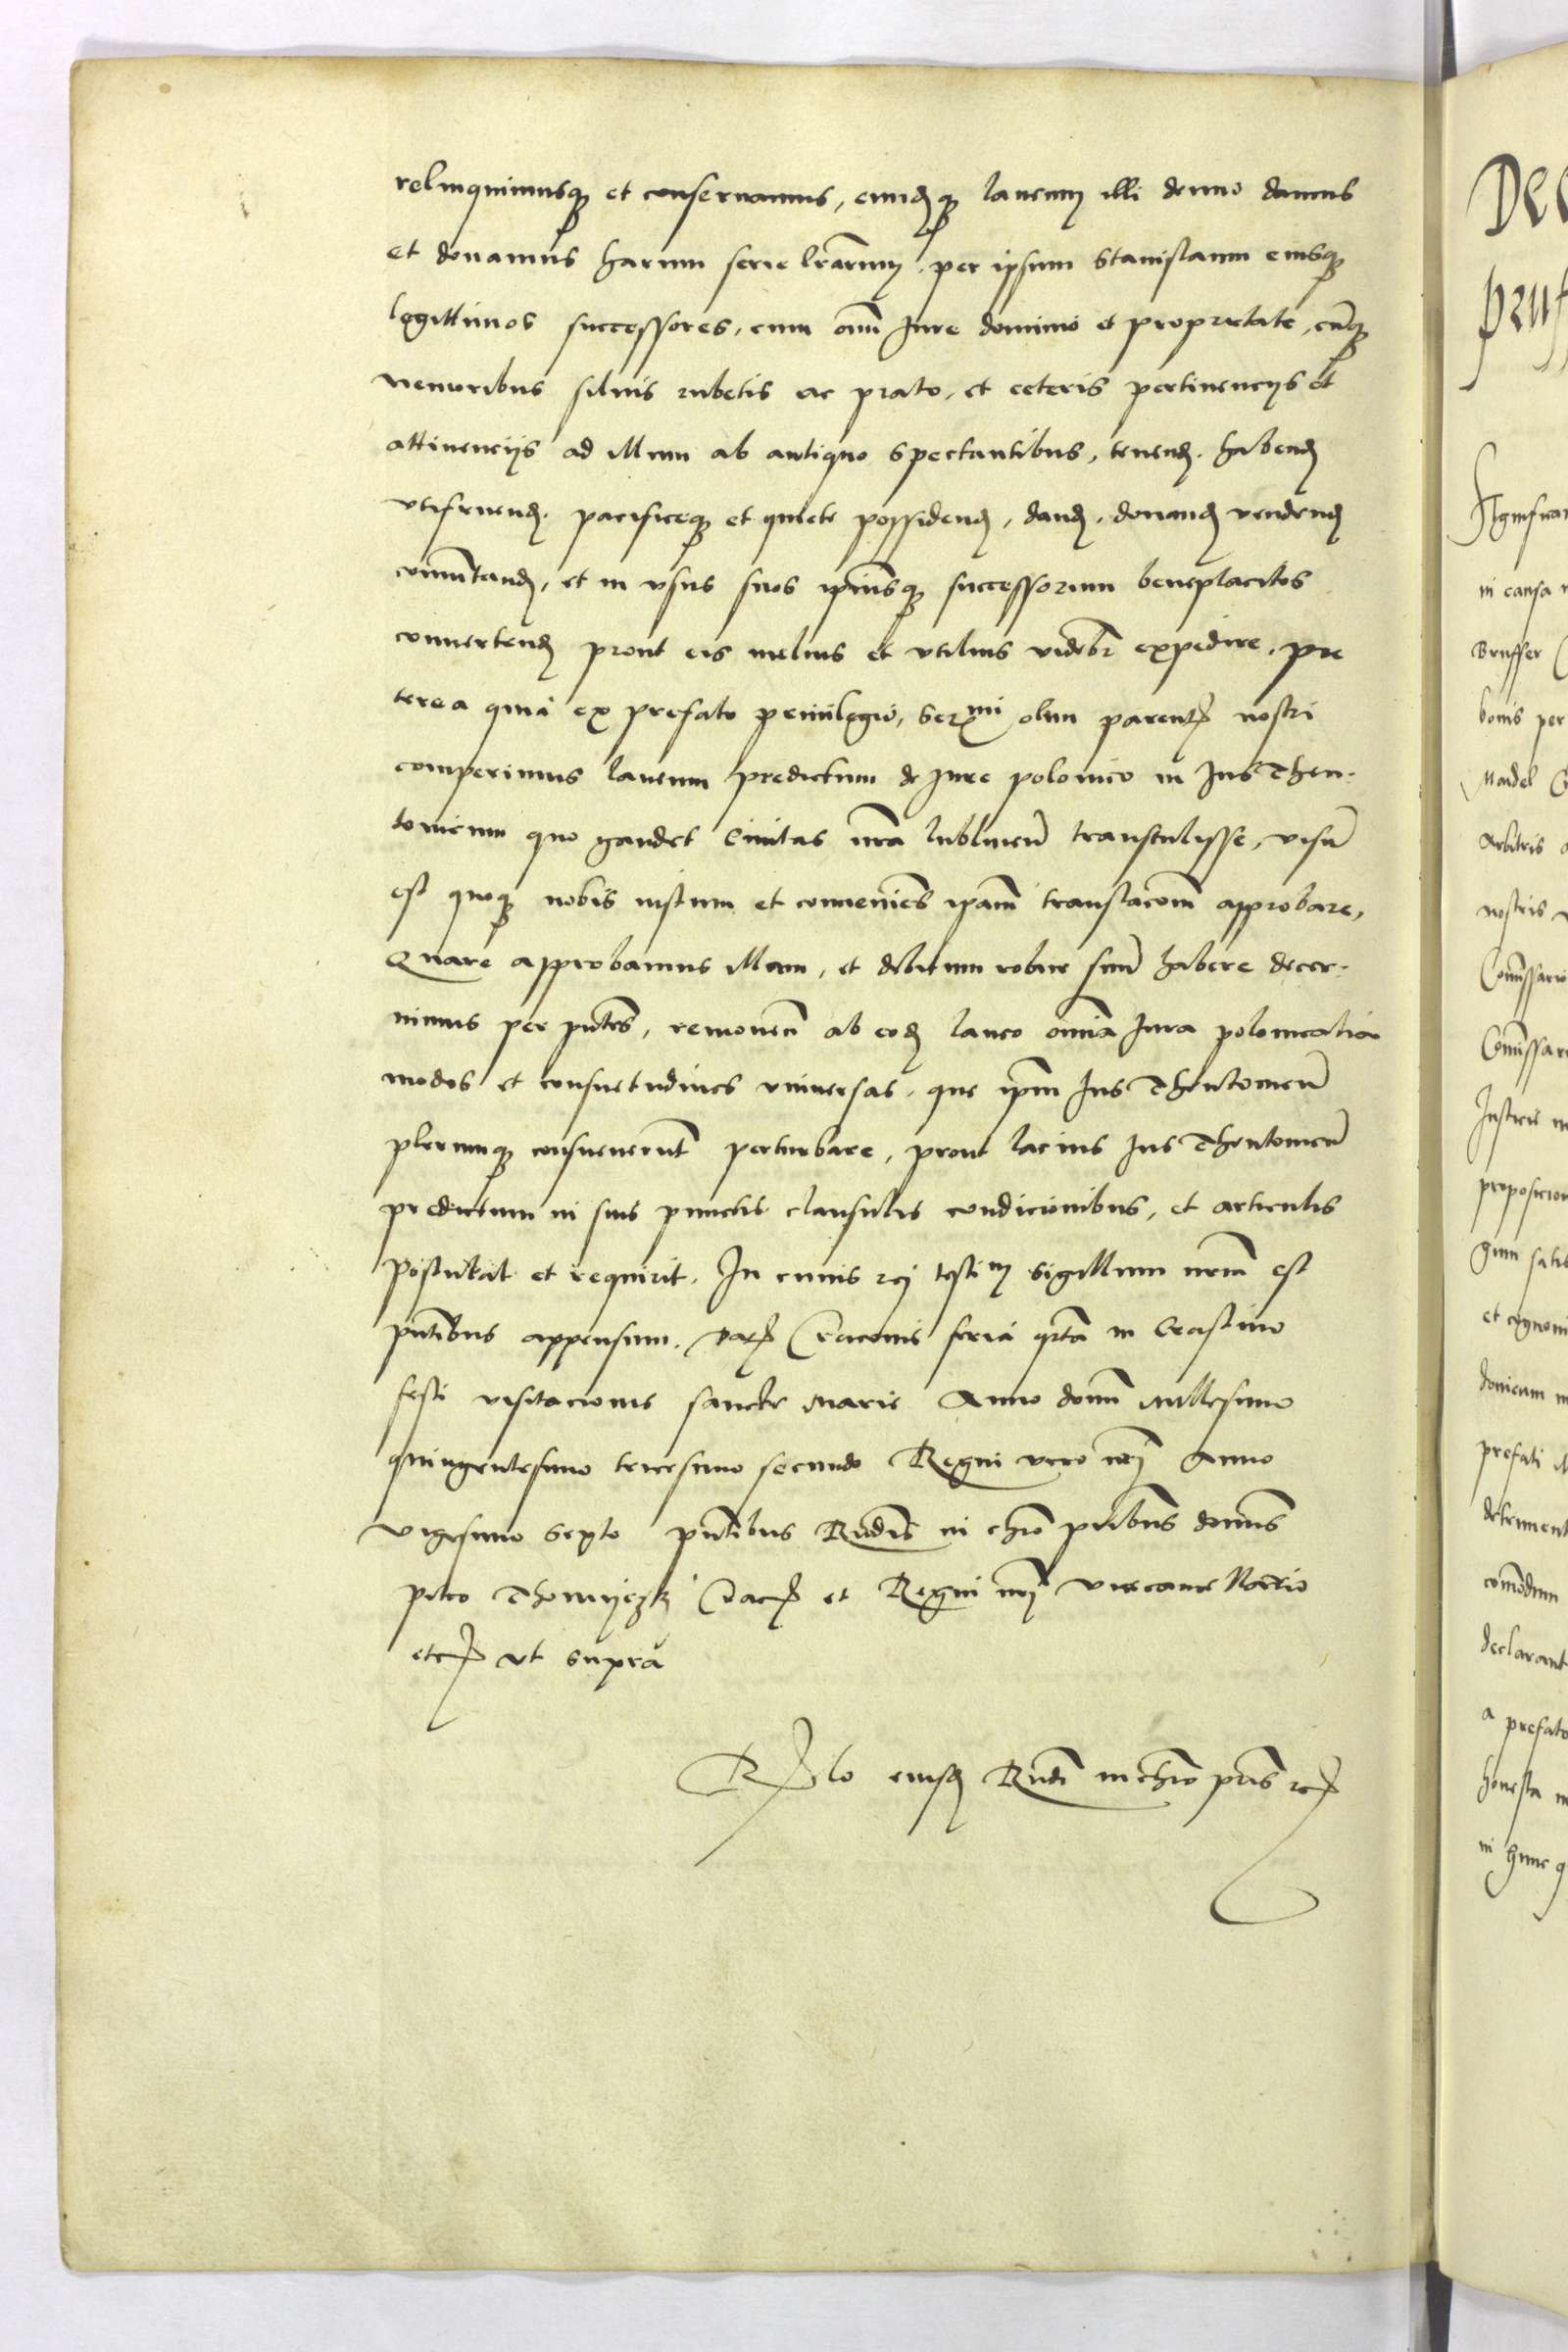 relinquimusq3 et conseruamus, eundq3 laneum illi denuo damus
et donamus harum serie lrarum, per ipsum Stanislaum eiusq3
legittimos successores, cum omi Jure dominio et proprietate, cumq3
nemoribus siluis rubetis ac prato, et ceteris pertinencijs et
attinencijs ad illum ab antiquo spectantibus, tenend. habend
vtifruend. pacificeq3 et quiete possidend, dand, donand vendend
comutand, et in vsus suos ipsiusq3 successorum beneplacitos
conuertend prout eis melius et vtilius videbr expedire. Pre
terea quia ex prefato priuilegio, Sermi olim parentis nostri
comperimus laneum predictum de Jure polonico in Jus Theu-
tonicum quo gaudet Ciuitas nra lublinen transtulisse, visu
est quoq3 nobis iustum et conueniens ipam translacoem approbare,
Quare approbamus illam, et debitum robur suu habere decer-
nimus per pntes, remouen ab eod laneo omnia Jura polonicalia
modos et consuetudines vniuersas, que ipm Jus Theutonicu
plerumq3 consueuerunt perturbare, prout lacius Jus Theutonicu
predictum in suis punctis clausulis condicionibus, et articulis
postulat et requirit. In cuius rei testim sigillum nrum est
pntibus appensum. Dat Cracouie feria qrta in Crastino
festi visitacionis sancte Marie Anno domi millesimo
quingentesimo tricesimo secundo Regni vero nri Anno
vigesimo sexto pntibus Rndis in chro pribus domis
petro Thomijczki Crac et Regni nri vicecanc Narrio
etc vt supra
Rlo eiusd Rndi in chro pris etc